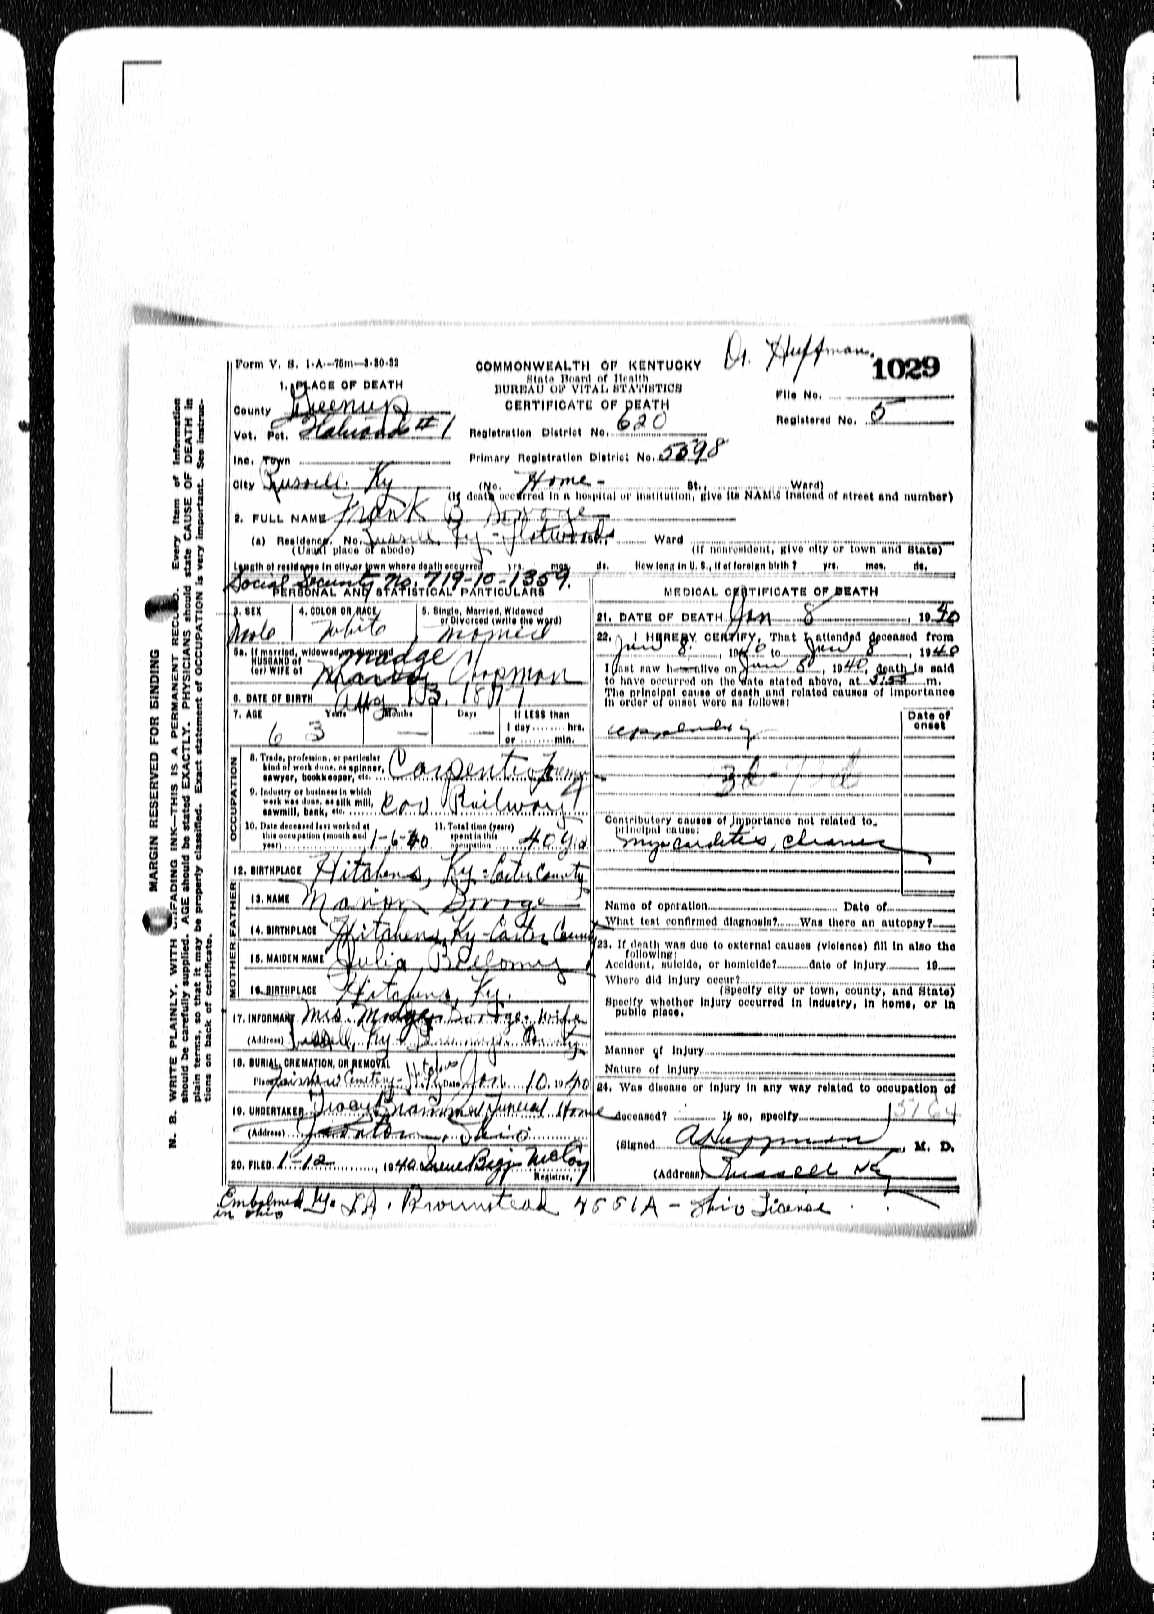 Dr. Huffman.
1029
Form V. S. 1-A—75m—3-30-32
COMMONWEALTH OF KENTUCKY
State Board of Health
BUREAU OF VITAL STATISTICS
CERTIFICATE OF DEATH
File No.
Registered No. 5
1. PLACE OF DEATH
County Greenup
Vot. Pct. #1
Registration District No. 620
Inc. Town
Primary Registration District No. 5598
City Russell. Ky (No. Home - St., Ward)
(If death occurred in a hospital or institution, give its NAME instead of street and number)
2. FULL NAME Frank B
(a) Residence. No. Ky - St., Ward
(Usual place of abode) (If nonresident, give city or town and State)
Length of residence in city or town where death occurred yrs. mos. ds. How long in U. S., if of foreign birth ? yrs. mos. ds.
Social Security No. 719-10-1359.
PERSONAL AND STATISTICAL PARTICULARS
3. SEX
4. COLOR OR RACE
5. Single, Married, Widowed or Divorced (write the word)
Male White
5a. If married, widowed, or divorced
HUSBAND of
(or) WIFE of
Madge
Chapman
6. DATE OF BIRTH Aug 13, 18
7. AGE Years Months Days If LESS than
1 day hrs.
or min.
63 — —
OCCUPATION
8. Trade, profession, or particular
kind of work done, as spinner,
sawyer, bookkeeper, etc.
Carpenter
9. Industry or business in which
work was done, as silk mill,
sawmill, bank, etc.
Railway
10. Date deceased last worked at
this occupation (month and
year) 1-6-40
11. Total time (years)
spent in this
occupation 40 yrs
12. BIRTHPLACE Hitchens, Ky. Carter County
FATHER
13. NAME Marion
14. BIRTHPLACE Hitchens, Ky - Carter County
MOTHER
15. MAIDEN NAME Julia
16. BIRTHPLACE Hitchens, Ky.
17. INFORMANT Mrs. Madge
(Address) Russell, Ky
18. BURIAL, CREMATION, OR REMOVAL
Place Cemetery - Hitchens Ky Date Jan 10, 1940
19. UNDERTAKER Funeral Home
(Address) Ironton, Ohio
20. FILED 1-12, 1940 Irene McCoy
Registrar.
MEDICAL CERTIFICATE OF DEATH
21. DATE OF DEATH Jan 8, 1940
22. I HEREBY CERTIFY, That I attended deceased from
Jan 8, 1940 to Jan 8, 1940
I last saw h alive on Jan 8, 1940, death is said
to have occurred on the date stated above, at m.
The principal cause of death and related causes of importance
in order of onset were as follows:
Date of onset
Contributory causes of importance not related to
principal cause:
myocarditis, chronic
Name of operation Date of
What test confirmed diagnosis? Was there an autopsy?
23. If death was due to external causes (violence) fill in also the
following:
Accident, suicide, or homicide? date of injury 19
Where did injury occur?
(Specify city or town, county, and State)
Specify whether injury occurred in industry, in home, or in
public place.
Manner of Injury
Nature of Injury
24. Was disease or injury in any way related to occupation of
deceased? If so, specify
(Signed Huffman, M. D.
(Address) Russell Ky
Embalmed by. L.A. Brownstead 4551A - Ohio License
in Ohio
MARGIN RESERVED FOR BINDING
N. B. WRITE PLAINLY, WITH UNFADING INK—THIS IS A PERMANENT RECORD. Every item of information
should be carefully supplied. AGE should be stated EXACTLY. PHYSICIANS should state CAUSE OF DEATH in
plain terms, so that it may be properly classified. Exact statement of OCCUPATION is very important. See instruc-
tions on back of certificate.